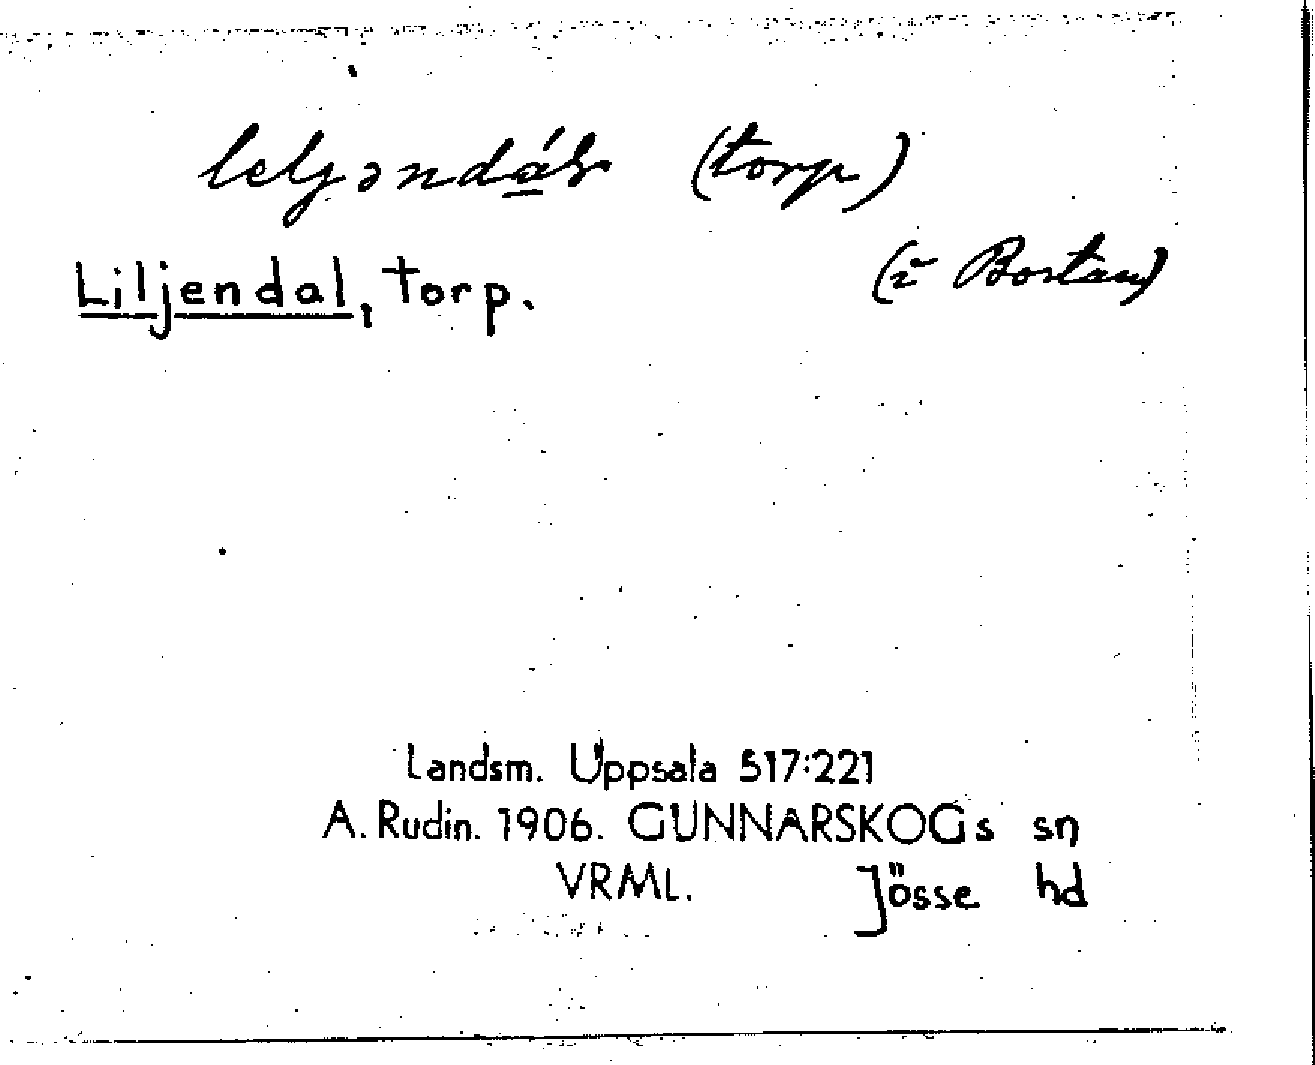 leljəndáls (torp)
(i Bostan)
Liljendal, torp.
Landsm. Uppsala 517:221
A. Rudin. 1906. GUNNARSKOGs sn
VRML. Jösse hd